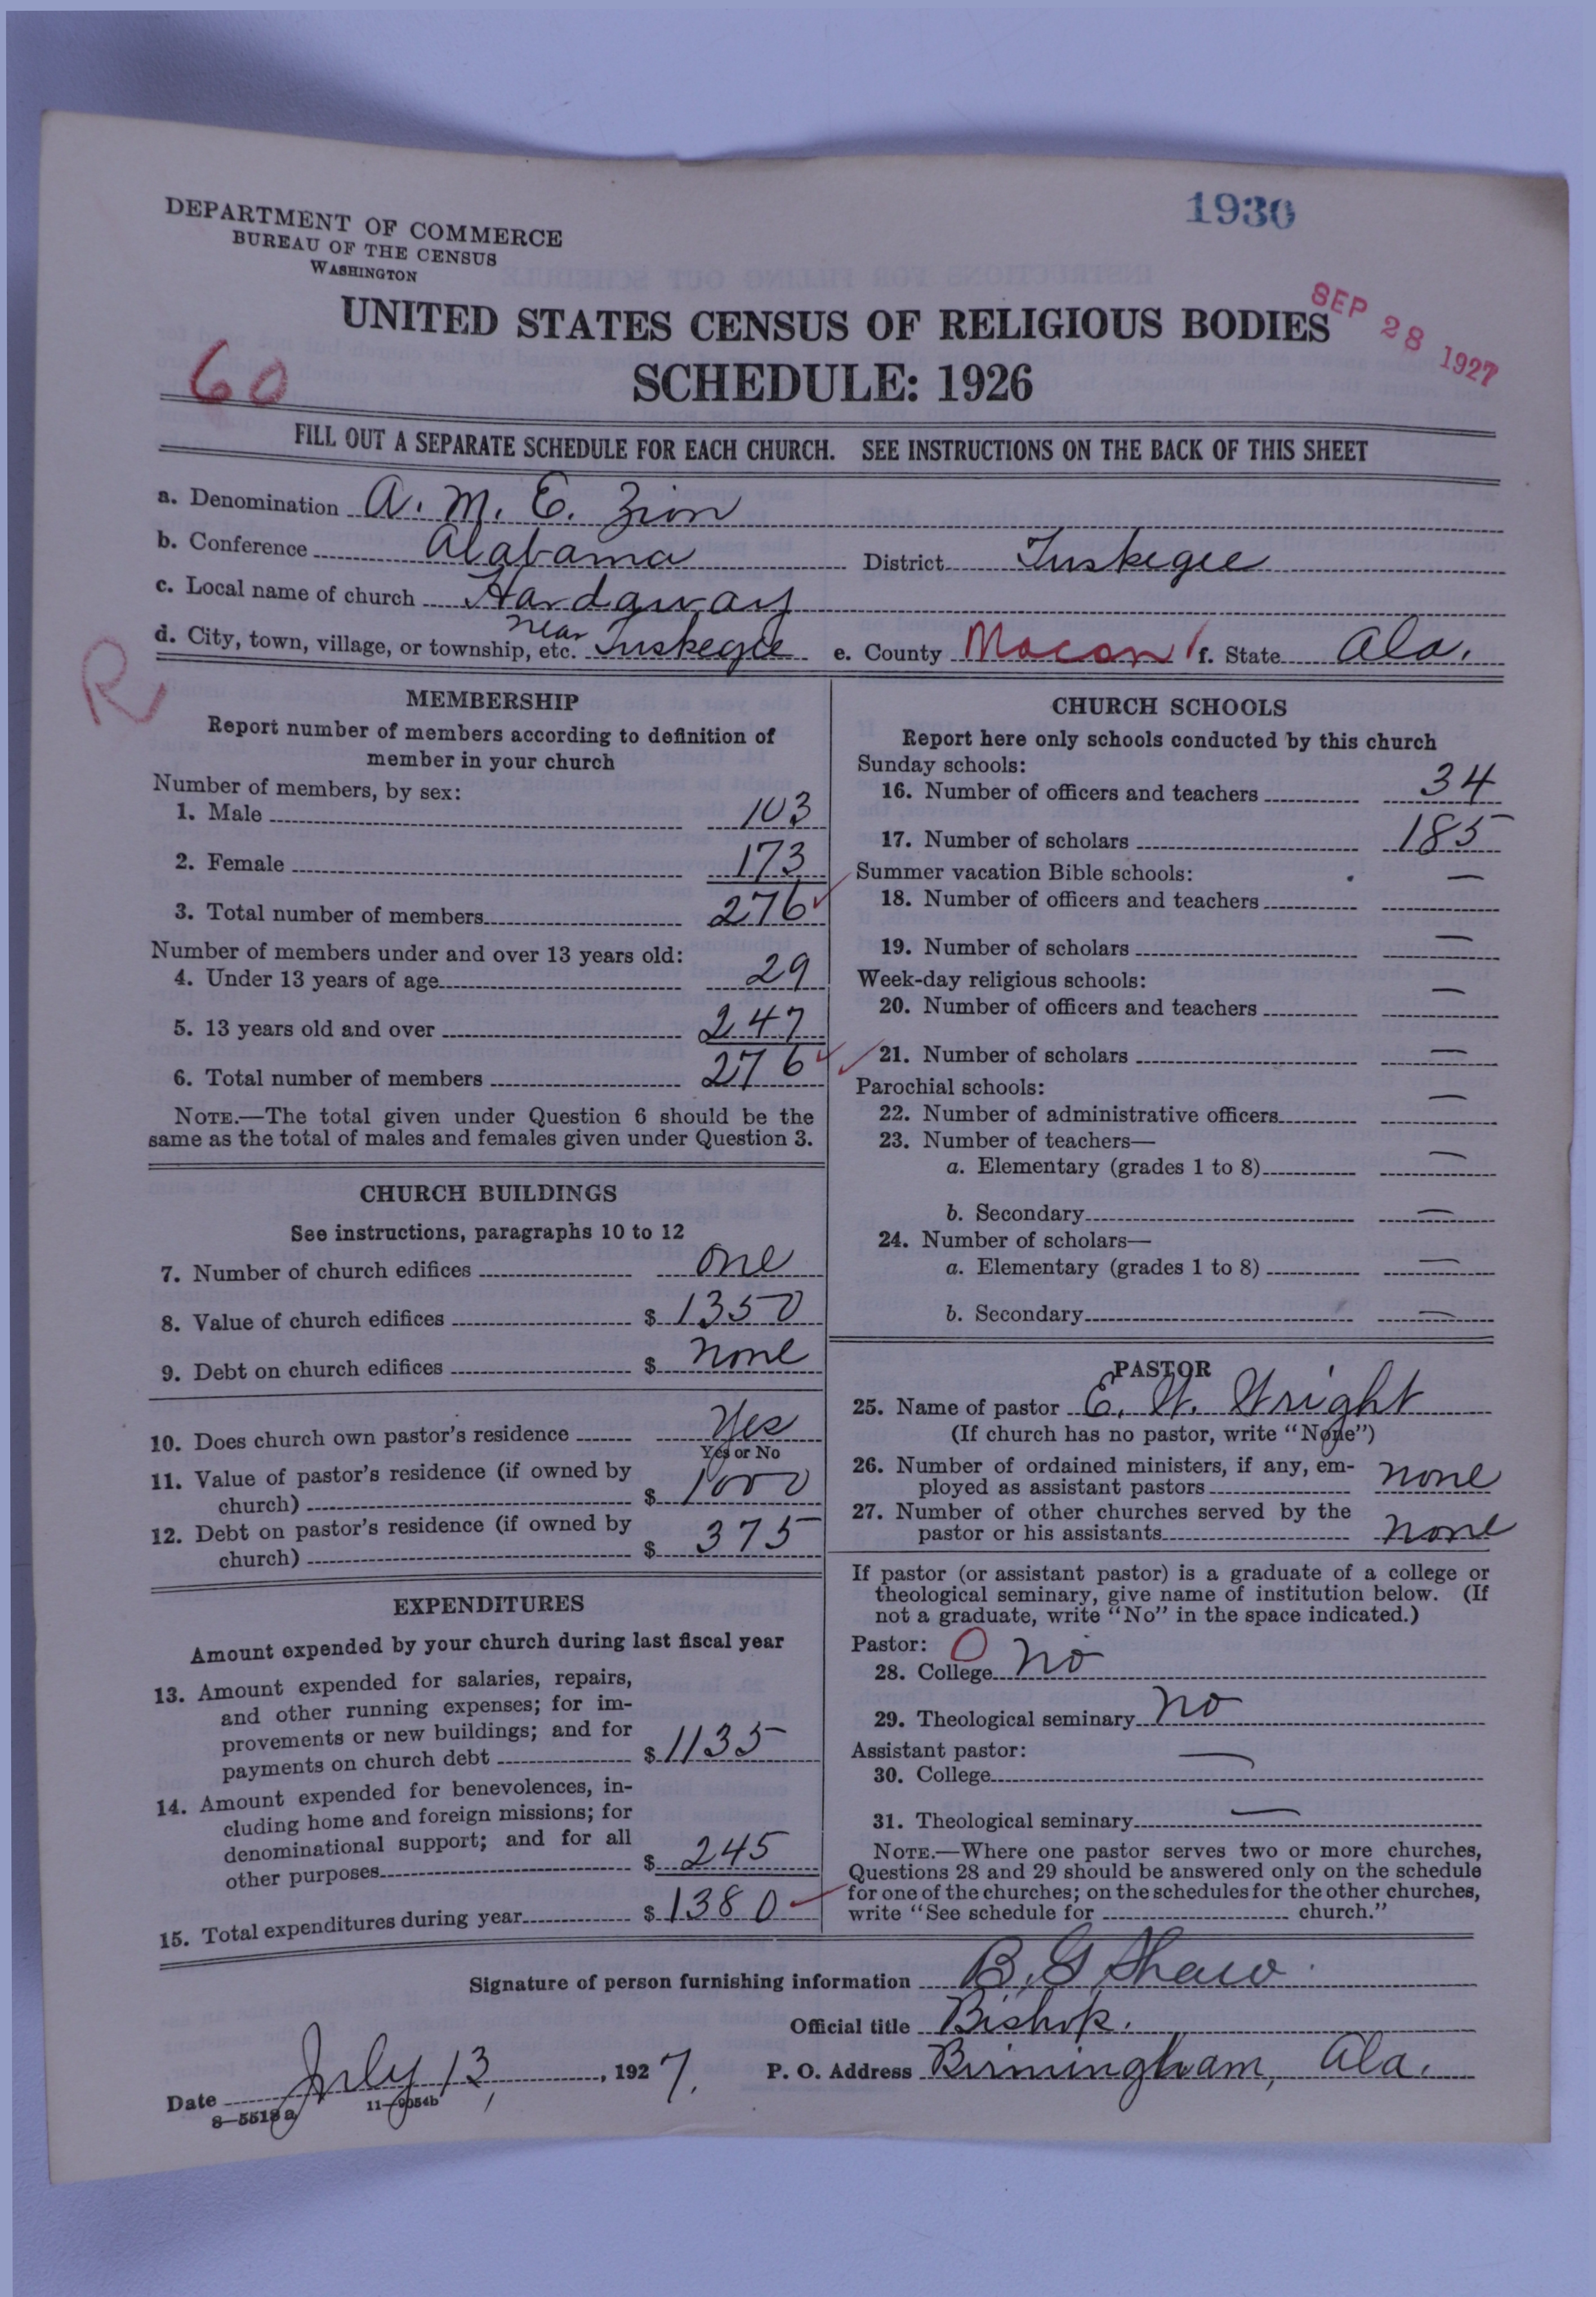 1930
DEPARTMENT OF COMMERCE
BUREAU OF THE CENSUS
WASHINGTON
UNITED STATES CENSUS OF RELIGIOUS BODIES
SEP 28 1927
SCHEDULE: 1926
60
FILL OUT A SEPARATE SCHEDULE FOR EACH CHURCH. SEE INSTRUCTIONS ON THE BACK OF THIS SHEET
a. Denomination A. M. E. Zion
b. Conference Alabama District Tuskegee
c. Local name of church Hardaway
d. City, town, village, or township, etc. near Tuskegee e. County Macon f. State Ala.
R
MEMBERSHIP
Report number of members according to definition of
member in your church
Number of members, by sex:
1. Male 103
2. Female 173
3. Total number of members 276
Number of members under and over 13 years old:
4. Under 13 years of age 29
5. 13 years old and over 247
6. Total number of members 276
NOTE.—The total given under Question 6 should be the
same as the total of males and females given under Question 3.
CHURCH BUILDINGS
See instructions, paragraphs 10 to 12
7. Number of church edifices one
8. Value of church edifices $ 1350
9. Debt on church edifices $ none
10. Does church own pastor's residence Yes
Yes or No
11. Value of pastor's residence (if owned by
church) $ 1000
12. Debt on pastor's residence (if owned by
church) $ 375
EXPENDITURES
Amount expended by your church during last fiscal year
13. Amount expended for salaries, repairs,
and other running expenses; for im-
provements or new buildings; and for
payments on church debt $ 1135
14. Amount expended for benevolences, in-
cluding home and foreign missions; for
denominational support; and for all
other purposes $ 245
15. Total expenditures during year $ 1380
CHURCH SCHOOLS
Report here only schools conducted by this church
Sunday schools:
16. Number of officers and teachers 34
17. Number of scholars 185
Summer vacation Bible schools:
18. Number of officers and teachers —
19. Number of scholars —
Week-day religious schools:
20. Number of officers and teachers —
21. Number of scholars —
Parochial schools:
22. Number of administrative officers —
23. Number of teachers—
a. Elementary (grades 1 to 8) —
b. Secondary —
24. Number of scholars—
a. Elementary (grades 1 to 8) —
b. Secondary —
PASTOR
25. Name of pastor E. W. Wright
(If church has no pastor, write "None")
26. Number of ordained ministers, if any, em-
ployed as assistant pastors none
27. Number of other churches served by the
pastor or his assistants none
If pastor (or assistant pastor) is a graduate of a college or
theological seminary, give name of institution below. (If
not a graduate, write "No" in the space indicated.)
Pastor: 0
28. College No
29. Theological seminary No
Assistant pastor:
30. College —
31. Theological seminary —
NOTE.—Where one pastor serves two or more churches,
Questions 28 and 29 should be answered only on the schedule
for one of the churches; on the schedules for the other churches,
write "See schedule for church."
Signature of person furnishing information B. G. Shaw
Official title Bishop.
Date July 13, 1927. P. O. Address Birmingham, Ala.
8—5518a 11—9054b